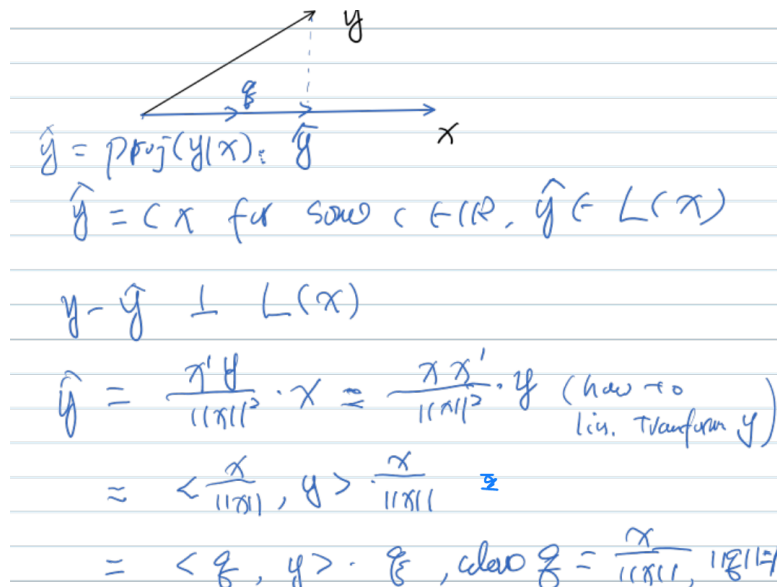 y
q
x
ŷ = proj(y|x): ŷ
ŷ = cx for some c ∈ ℝ, ŷ ∈ L(x)
y - ŷ ⊥ L(x)
ŷ = x'y / ||x||² · x = xx' / ||x||² · y (how to
lin. transform y)
= < x / ||x||, y > · x / ||x||
= < q, y > · q, q = x / ||x||, ||q||=